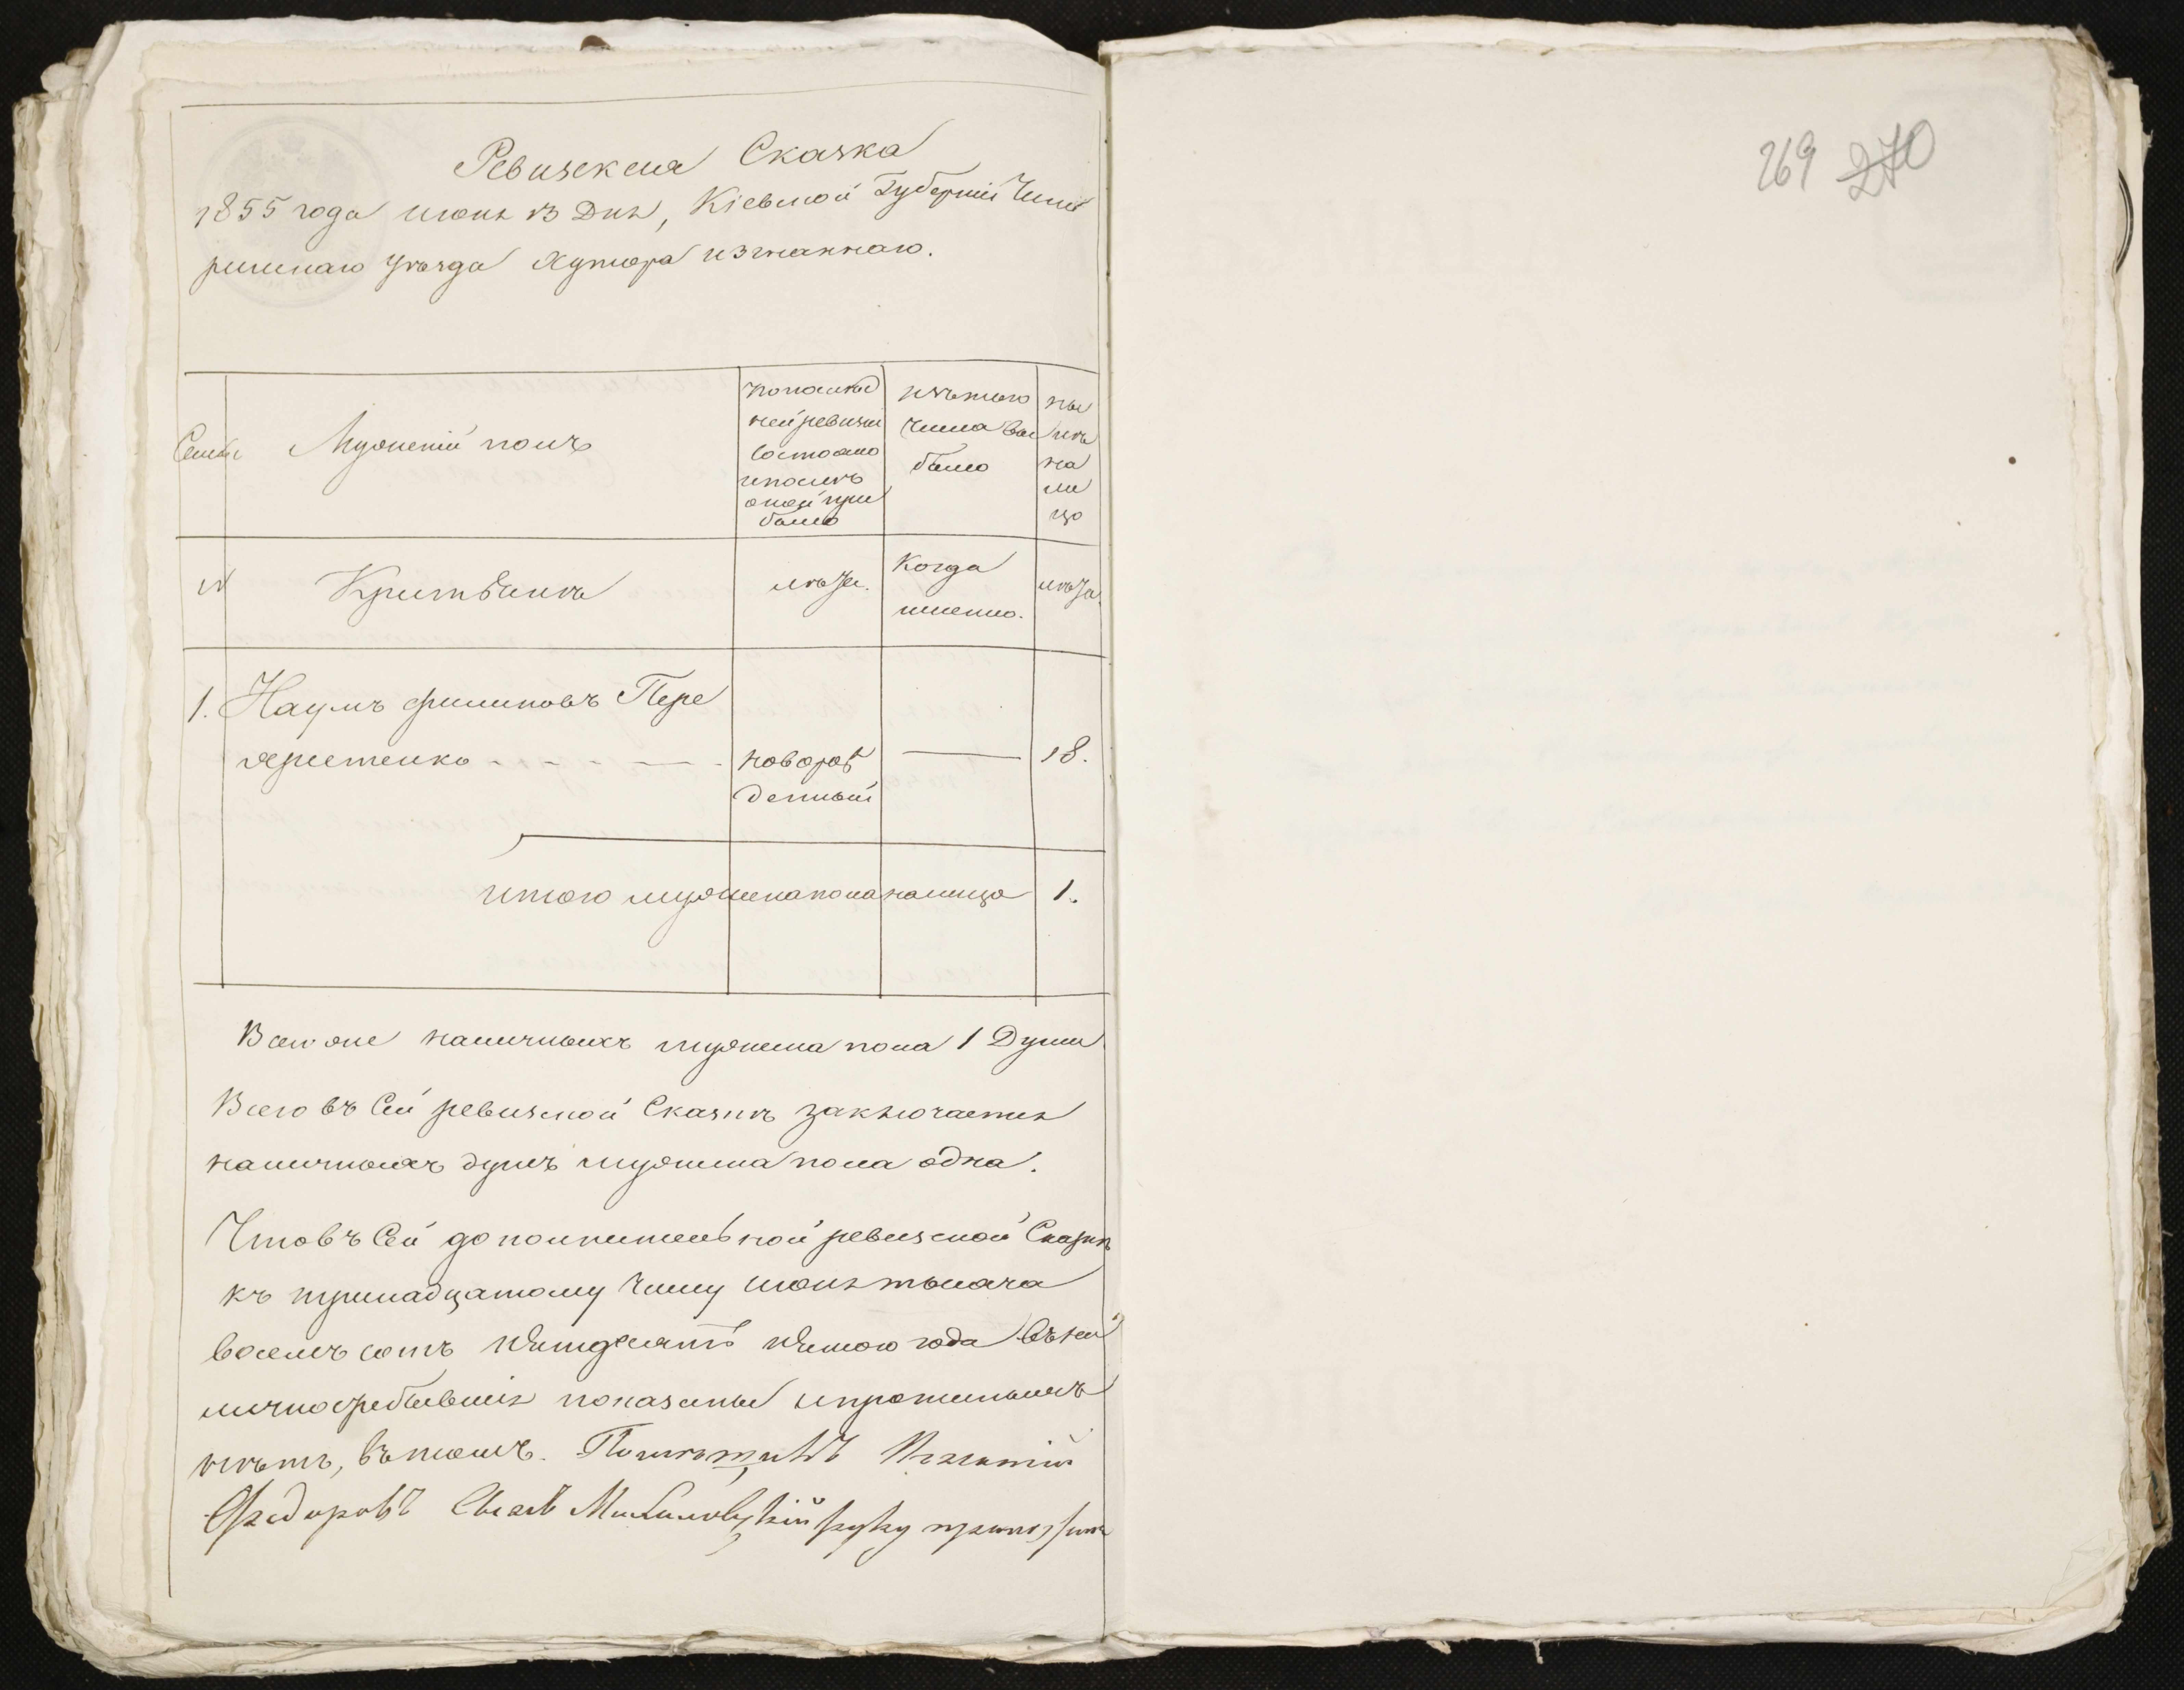 Ревизская Сказка
1855 года июня 13 Дня, Кіевской Губерніи Чиги
ринскаго уѣзда Хутора изгнаннаго.
Семьи
Мужескій полъ
По послѣд
ней ревизіи
состояло
и послѣ
оной при
было
изъ того
числа вы
было
ны
нѣ
на
ли
цо
N
Крестьянъ
лѣта.
Когда
именно.
лѣта.
1. Наумъ Филиповъ Пере
хрестенко - - - - - новорож — 18.
денный
итого мужеска пола налицо 1.
Всего же наличныхъ мужеска пола 1 Душа
Всего въ Сей ревизской Сказкѣ заключается
наличныхъ душъ мужеска пола одна.
Что въ Сей дополнительной ревизской Сказкѣ
къ тринадцатому числу июня тысяча
восемь сотъ пятдесятъ пятого года въ ней
показаны и прописныхъ
нѣтъ, въ томъ. Помѣщикъ Игнатій
Федоровъ Сынъ руку приложилъ
269 270